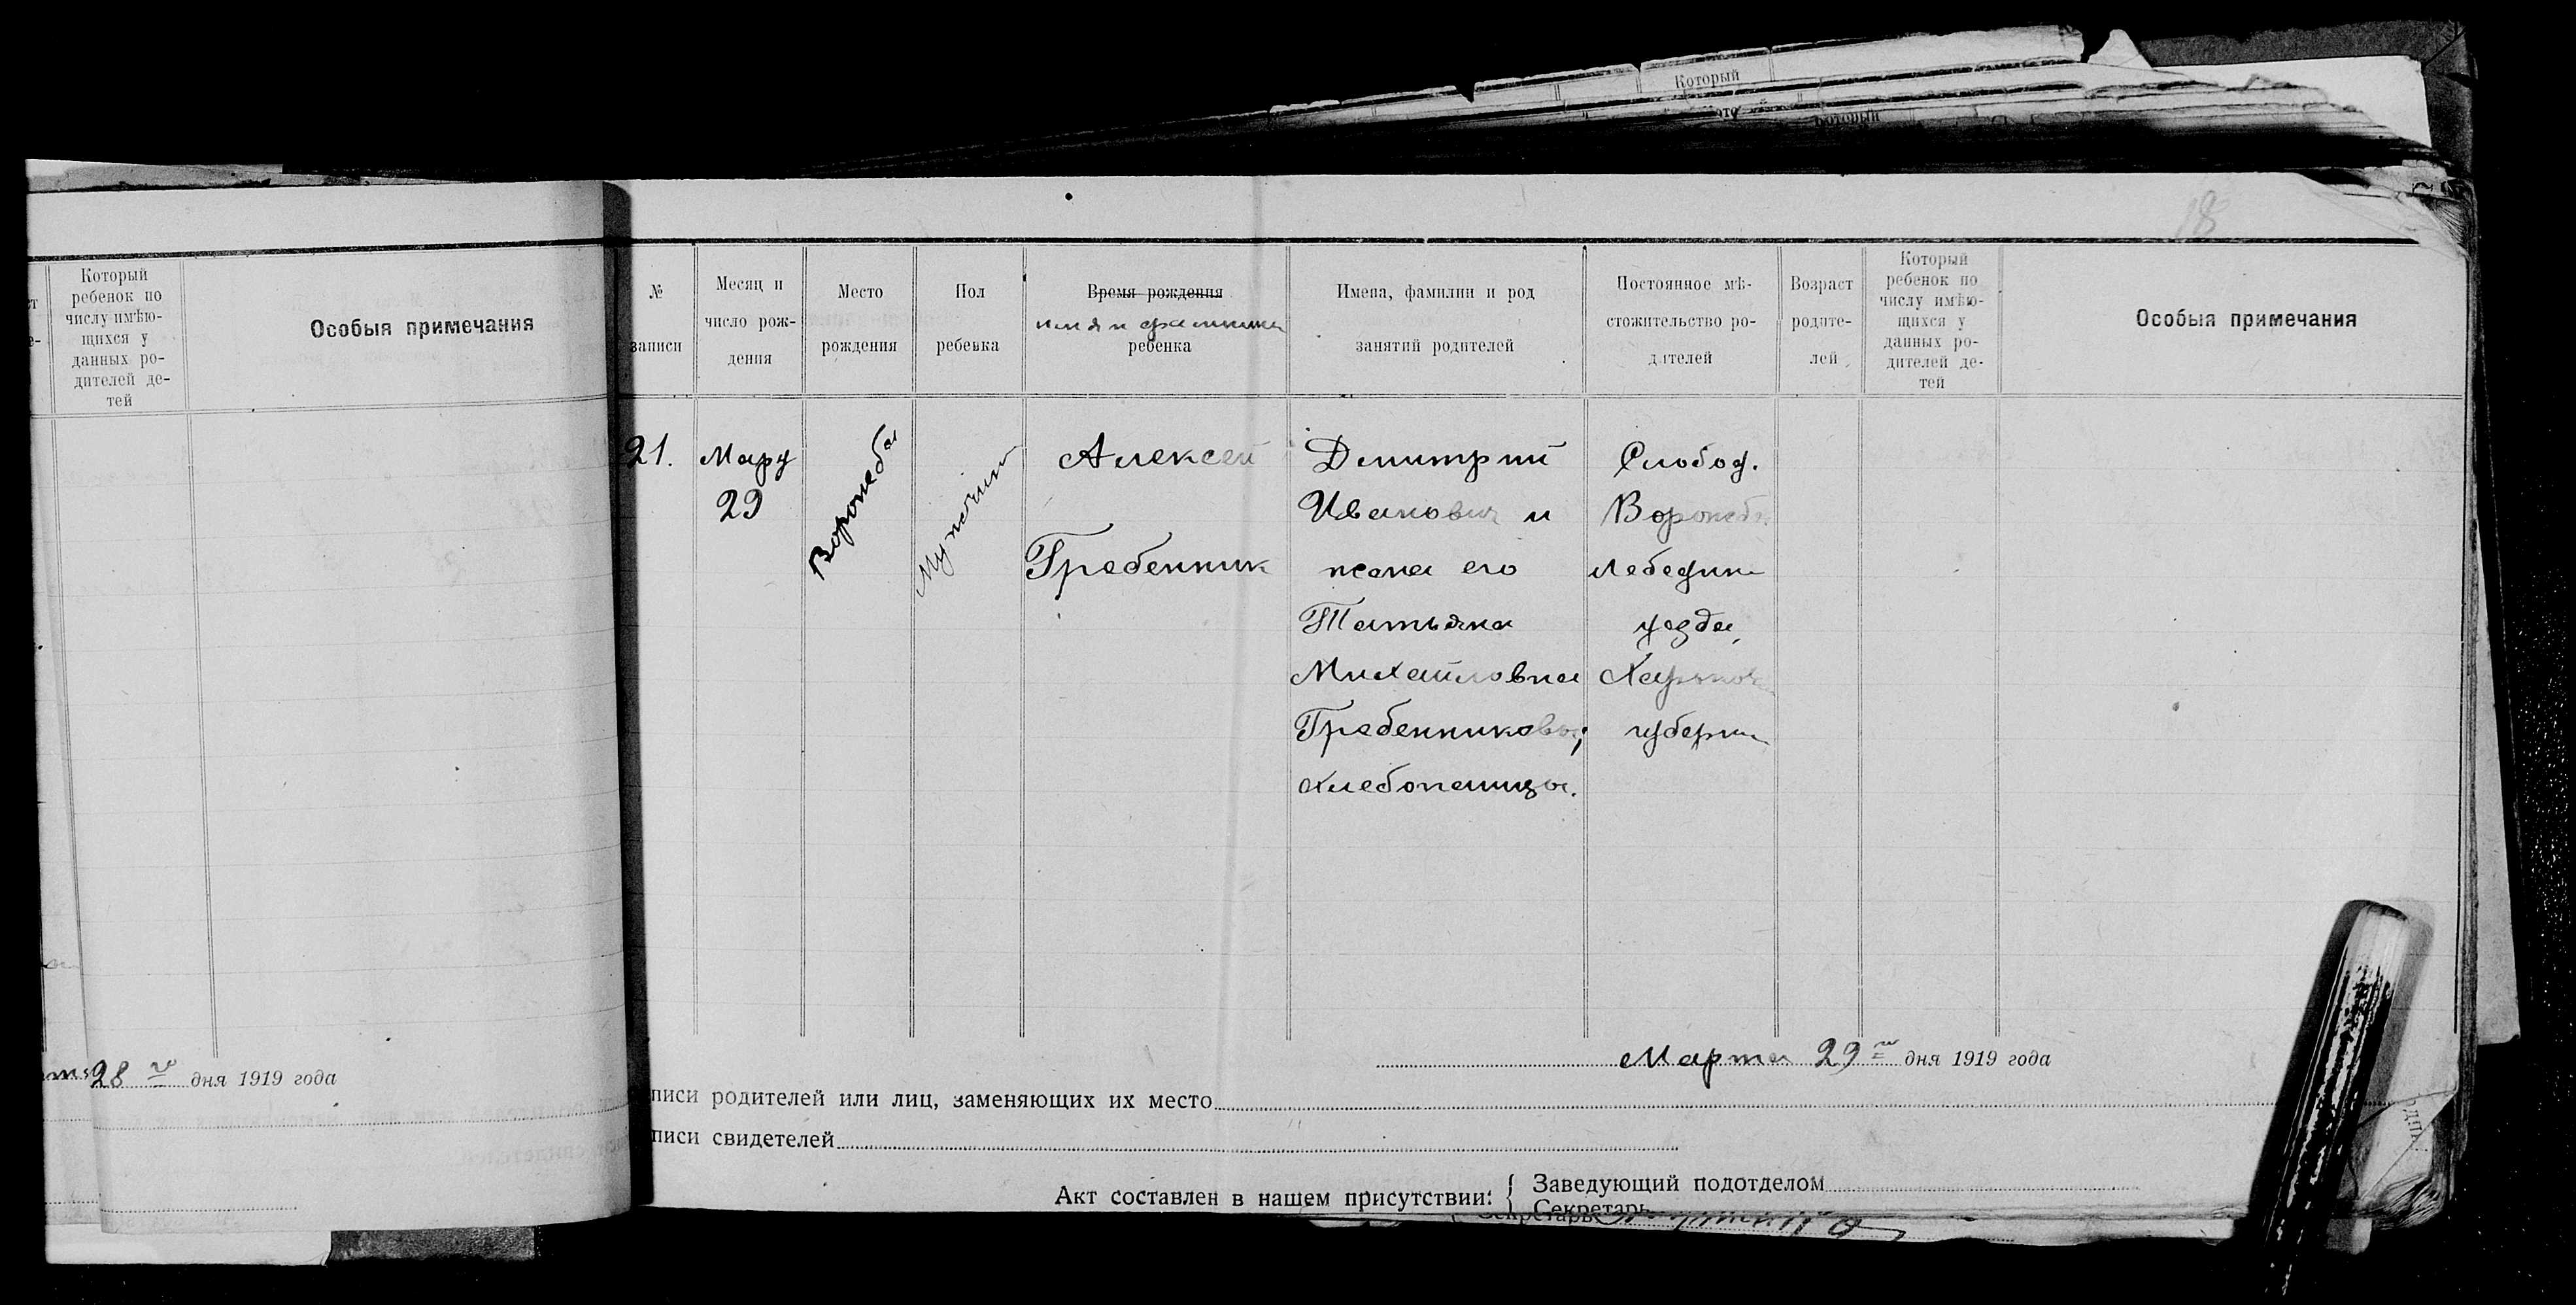 Который
Который
18
Который
ребенок по
числу имѣю-
щихся у
данных ро-
дителей де-
тей
Особыя примечания
28 го дня 1919 года
№
записи
Месяц и
число рож-
дения
Место
рождения
Пол
ребенка
Время рождения
имя и фамилия
ребенка
Имена, фамилии и род
занятий родителей
Постоянное мѣ-
стожительство ро-
дителей
Возраст
родите-
лей
Который
ребенок по
числу имѣю-
щихся у
данных ро-
дителей де-
тей
Особыя примечания
21.
Март
29
Воронеба
Мужчин
Алексей
Гребенник
Димитрий
Иванович и
жена его
Татьяна
Михайловна
Гребенниковы;
хлебопашцы.
Слобод.
Воронеба
Лебедин
уезда,
Харьков
губерни
Марта 29 го дня 1919 года
писи родителей или лиц, заменяющих их место
писи свидетелей
Акт составлен в нашем присутствии:
Заведующий подотделом
Секретарь
Секретарь